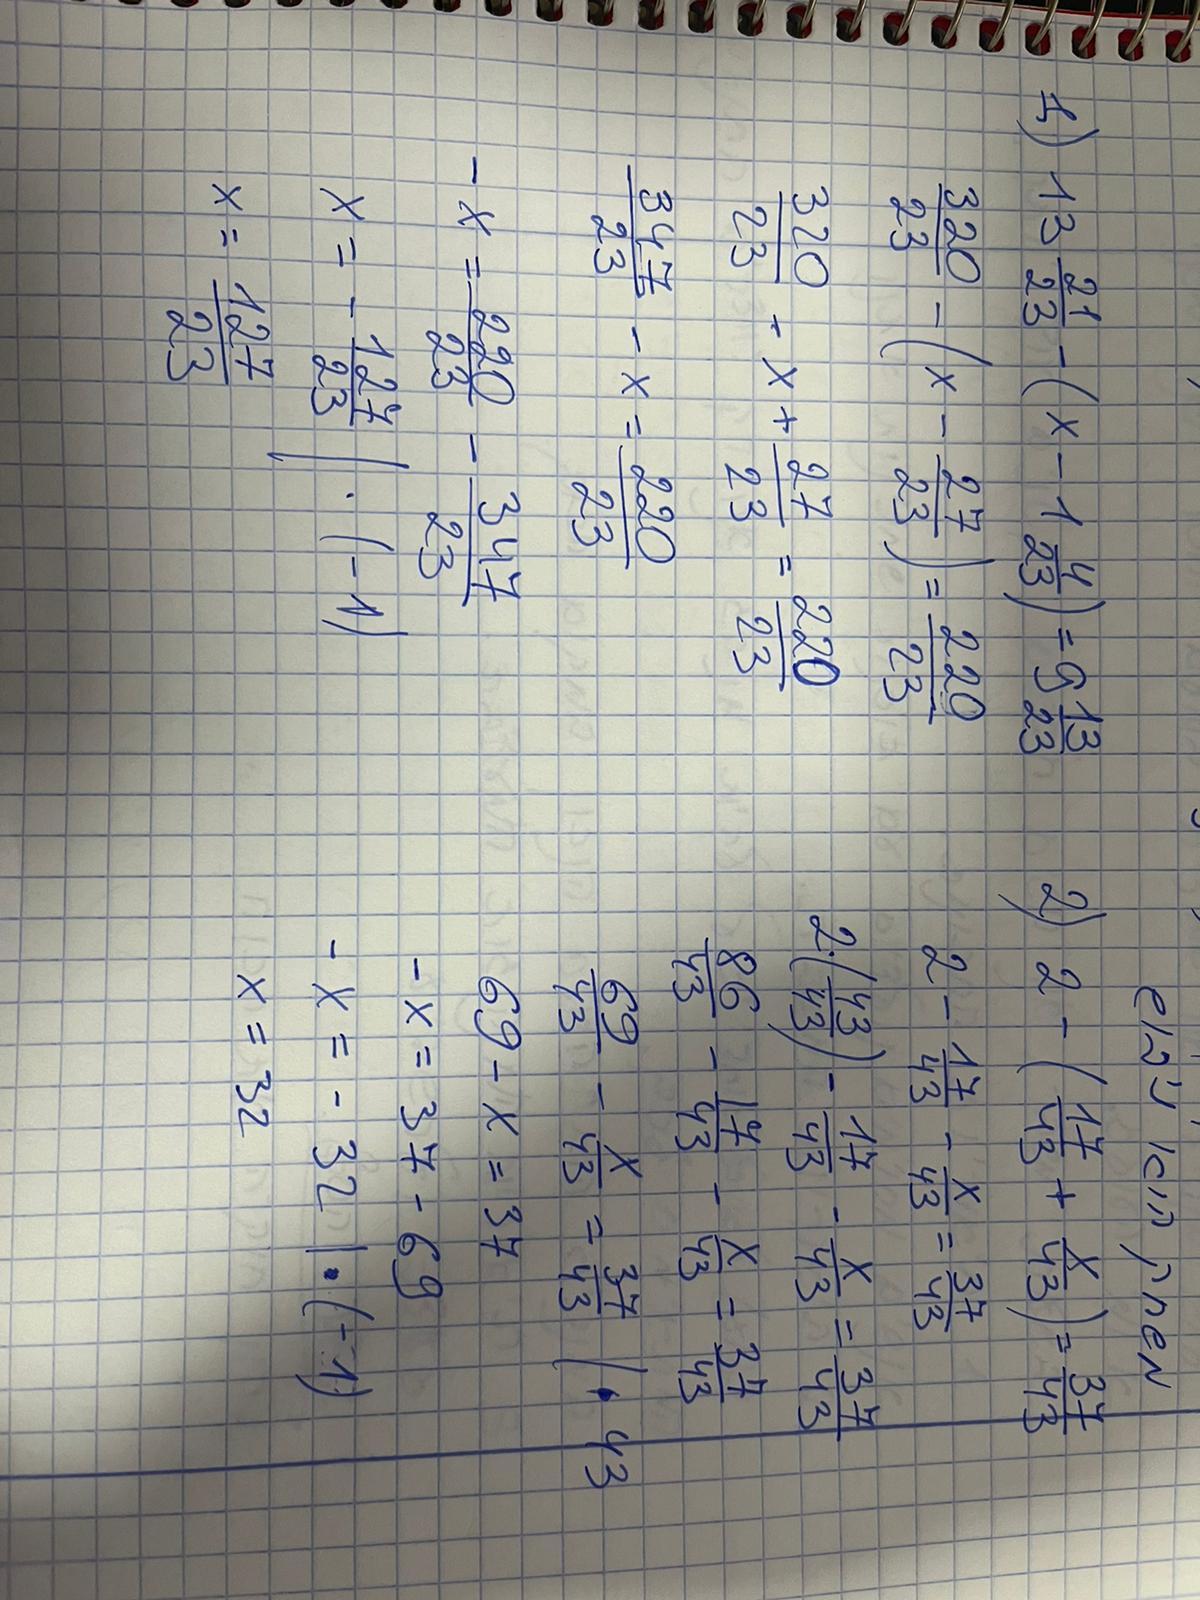 1) 13 21/23 - (x - 1 4/23) = 9 13/23
320/23 - (x - 27/23) = 220/23
320/23 - x + 27/23 = 220/23
347/23 - x = 220/23
- x = 220/23 - 347/23
x = - 127/23 | · (-1)
x = 127/23
2) 2 - (17/43 + x/43) = 37/43
2 - 17/43 - x/43 = 37/43
2·(43/43) - 17/43 - x/43 = 37/43
86/43 - 17/43 - x/43 = 37/43
69/43 - x/43 = 37/43 | · 43
69 - x = 37
- x = 37 - 69
- x = - 32 | · (-1)
x = 32